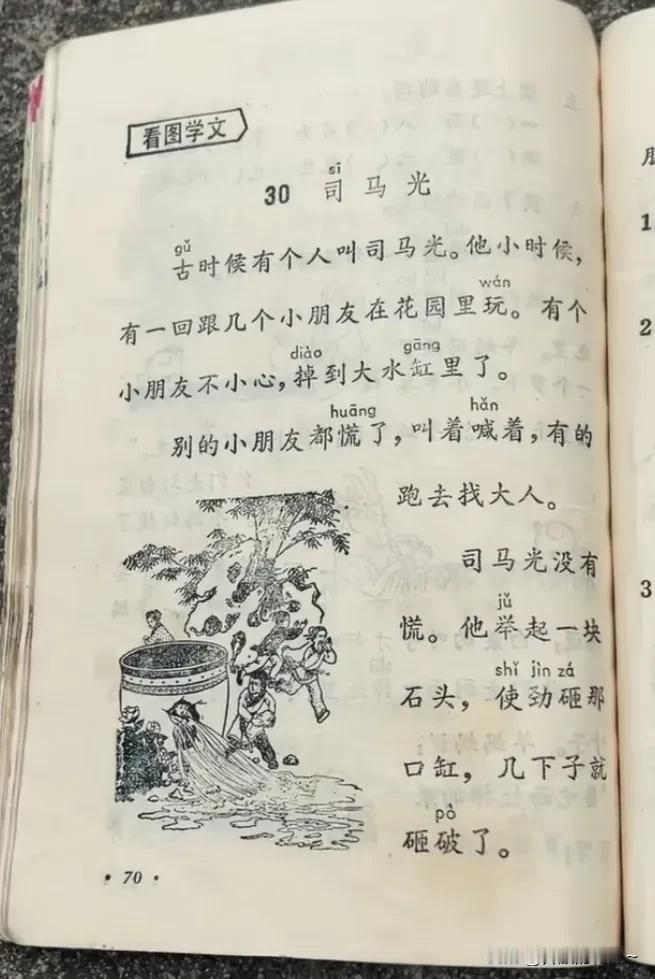 看图学文
sī
30 司马光
gǔ
古时候有个人叫司马光。他小时候,
wán
有一回跟几个小朋友在花园里玩。有个
diào gāng
小朋友不小心,掉到大水缸里了。
huāng hǎn
别的小朋友都慌了,叫着喊着,有的
跑去找大人。
司马光没有
jǔ
慌。他举起一块
shǐ jìn zá
石头,使劲砸那
口缸,几下子就
pò
砸破了。
·70·
1
2
3